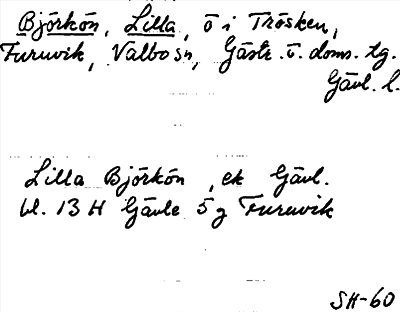 Björkön, Lilla, ö i Trösken,
Furuvik, Valbo sn, Gästr. ö. doms. tg.
Gävl. l.
Lilla Björkön, ek Gävl.
bl. 13 H Gävle 5 g Furuvik
SH-60